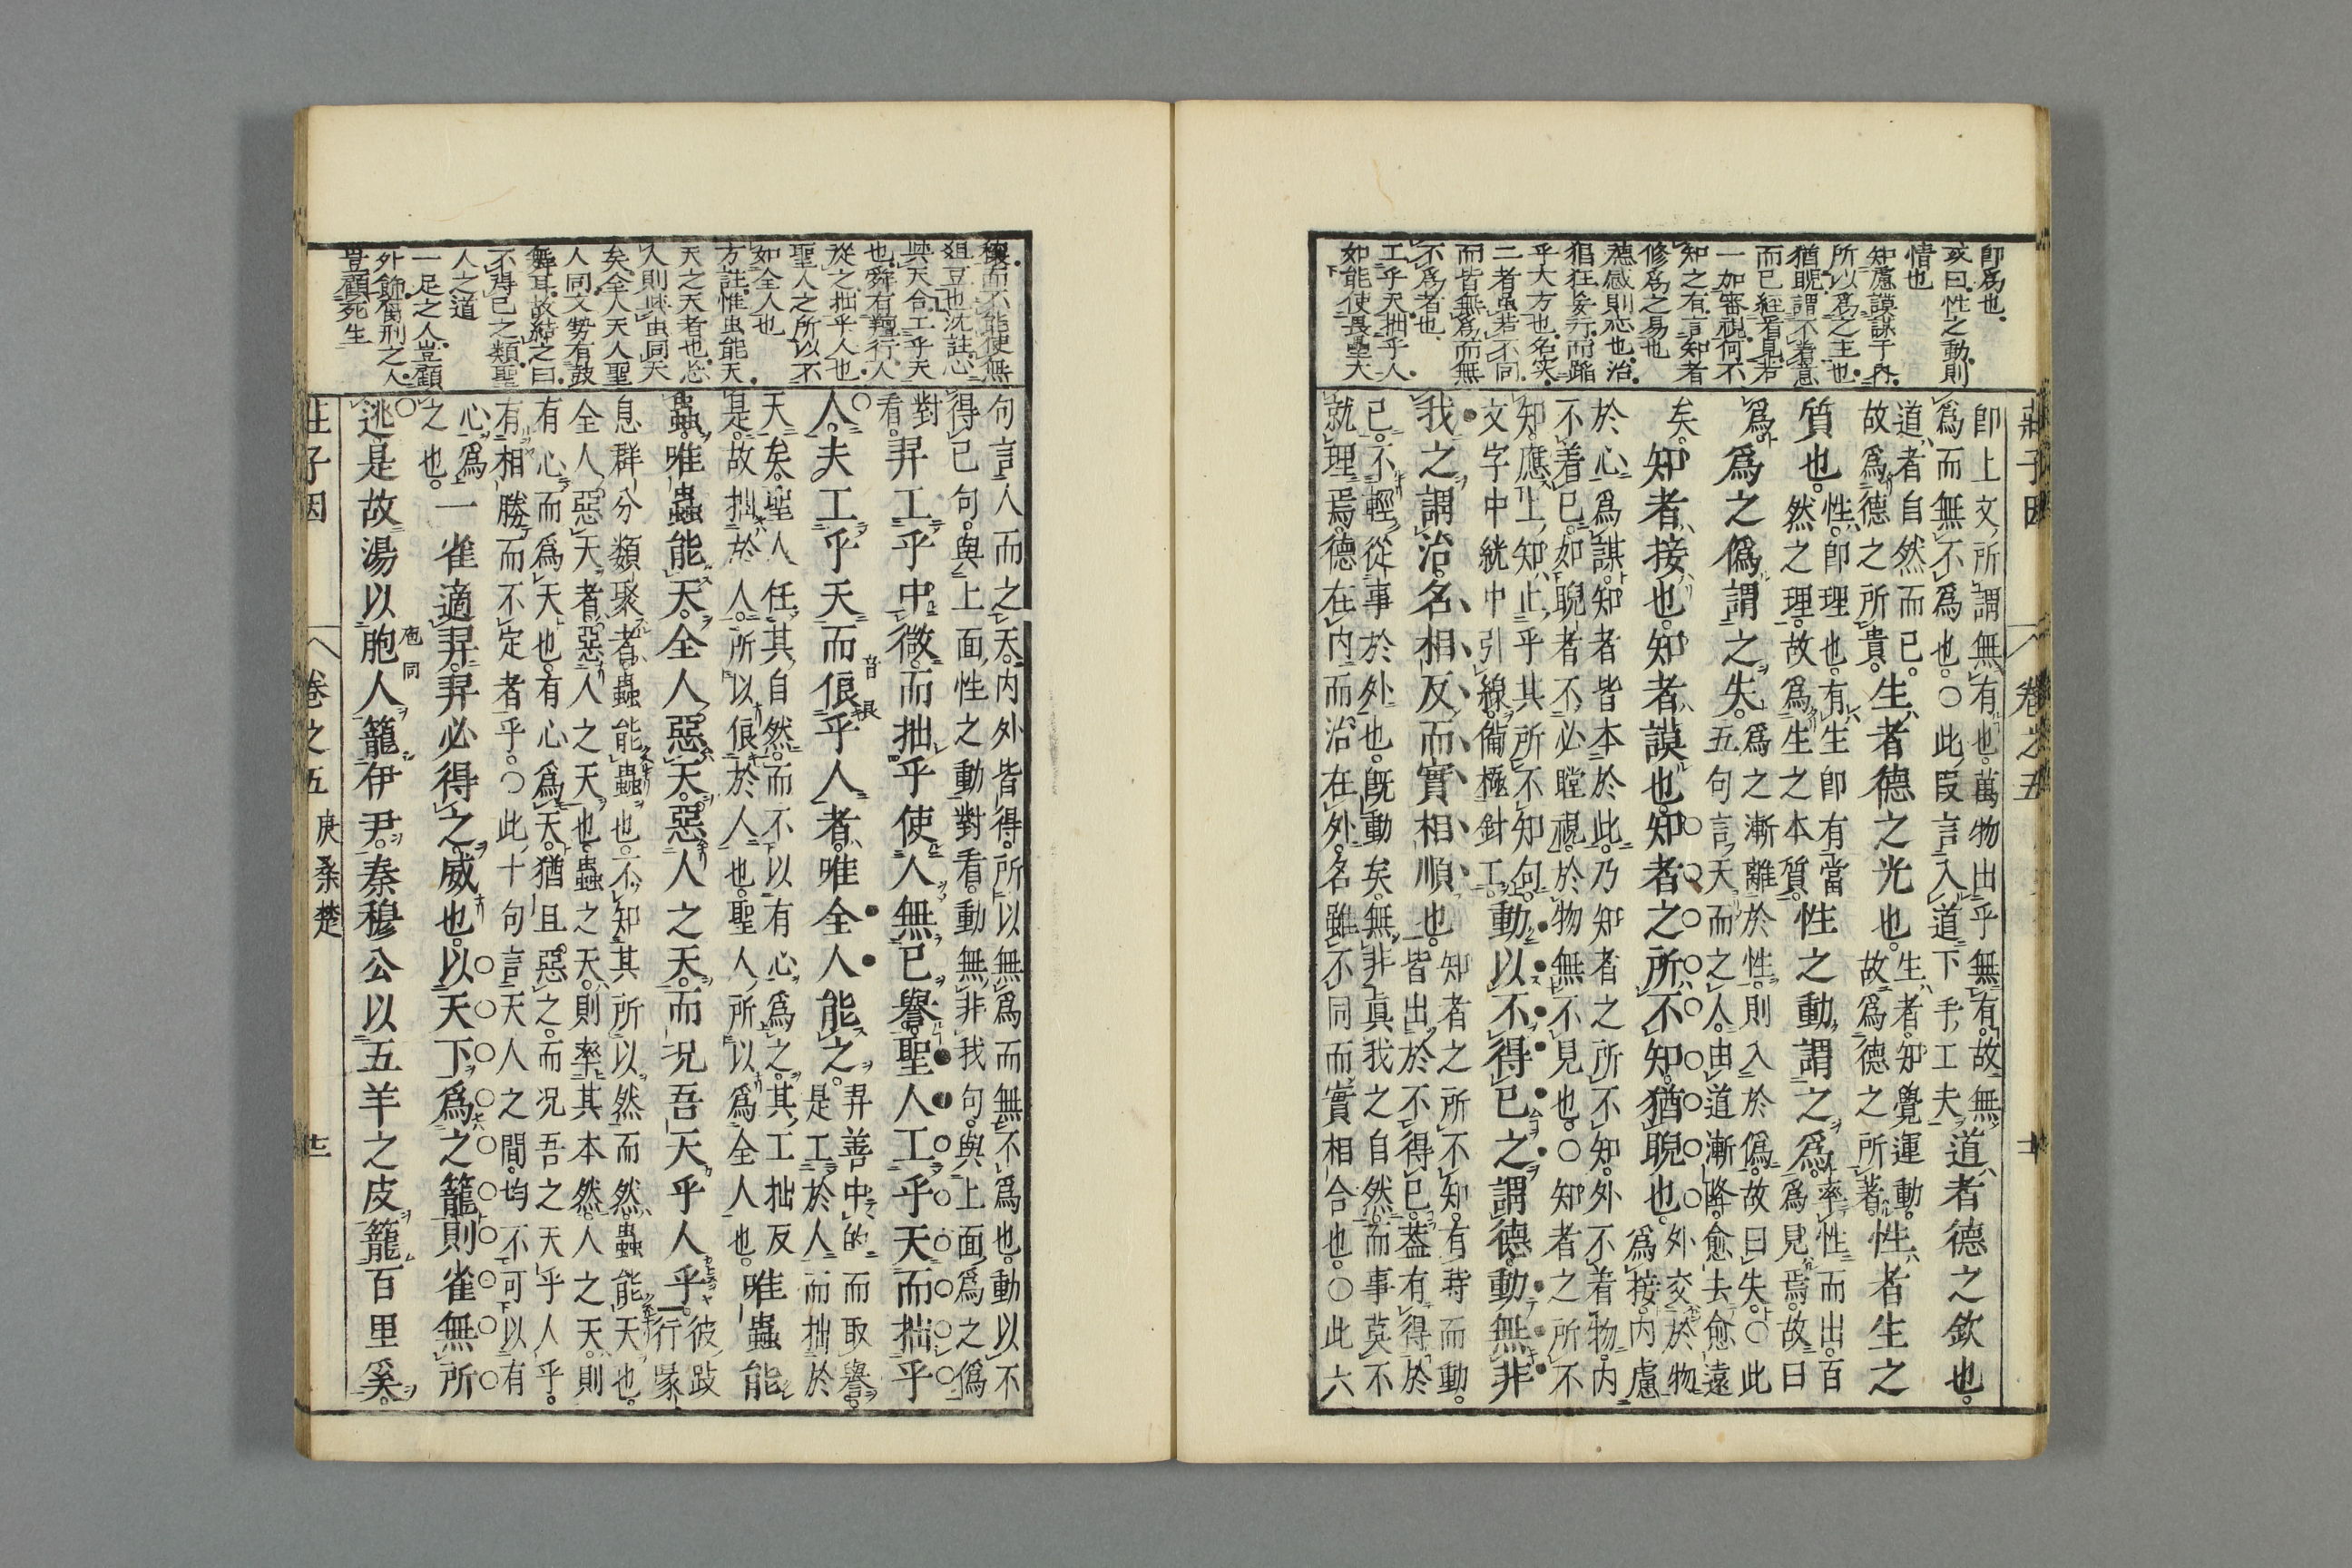 莊子因
卷之五
卽爲也
亥曰性之動則
情也
知慮謨謀于內
所以爲之主也
猶睨謂不着意
而已經看見若
一如審視何不
知之有言知者
修爲之易也
德感則応也治
猖狂妄行而蹈
乎大方也名実
二者虽若不同
而皆無爲而無
不爲者也
工乎天拙乎人
如能使畏壘大
卽上文所謂無有也萬物出乎無有故無
爲而無不爲也○此段言入道下手工夫
道者德之欽也
道者自然而已
故爲德之所貴
生者德之光也
生者知覺運動
故爲德之所著
性者生之
質也
性卽理也有生卽有當
然之理故爲生之本質
性之動謂之爲
率性而出百
爲見焉故曰
爲
爲之僞謂之失
爲之漸離於性則入於僞故曰失○此
五句言天而之人由道漸降愈去愈遠
矣
知者接也知者謨也知者之所不知猶睨也
外交於物
爲接內慮
於心爲謀知者皆本於此乃知者之所不知外不着物內
不着已如睨者不必瞠視於物無不見也○知者之所不
知應上知止乎其所不知句
文字中綫中引線僃極針工
動以不得已之謂德動無非
我之謂治名相反而實相順也
知者之所不知有時而動
皆出於不得已葢有得於
已不輕從事於外也旣動矣無非眞我之自然而事莫不
就理焉德在內而治在外名雖不同而實相合也○此六
穰而不能使無
俎豆也沈註忘
與天合工乎天
也舜有羶行人
從之拙乎人也
聖人之所以不
如全人也
方註惟虫能天
天之天者也忿
人則與虫同天
矣全人天人聖
人同文勢有鼓
舞耳故結之曰
不得已之類聖
人之道
一足之人豈顧
外飾胥刑之人
豈顧死生
句言人而之天內外皆得所以無爲而無不爲也動以不
得已句與上面性之動對看動無非我句與上面爲之僞
對
看
羿工乎中微而拙乎使人無已譽聖人工乎天而拙乎
人夫工乎天而俍乎人者唯全人能之
音
羿善中的而取譽
是工於人而拙於
天矣聖人任其自然而不以有心爲之其工拙反
是故拙於人所以俍於人也聖人所以爲全人也
唯蟲能
蟲唯蟲能天全人惡天惡人之天而况吾天乎人乎
彼跂
行喙
息群分類聚者蟲能蟲也不知其所以然而然蟲能天也
全人惡天者惡人之天也蟲之天則率其本然人之天則
有心而爲天也有心爲天猶且惡之而况吾之天乎人乎
有相勝而不定者乎○此十句言天人之間均不可以有
心爲
之也
一雀適羿羿必得之威也以天下爲之籠則雀無所
逃是故湯以胞人籠伊尹秦穆公以五羊之皮籠百里奚
庖同
莊子因
卷之五
庚桑楚